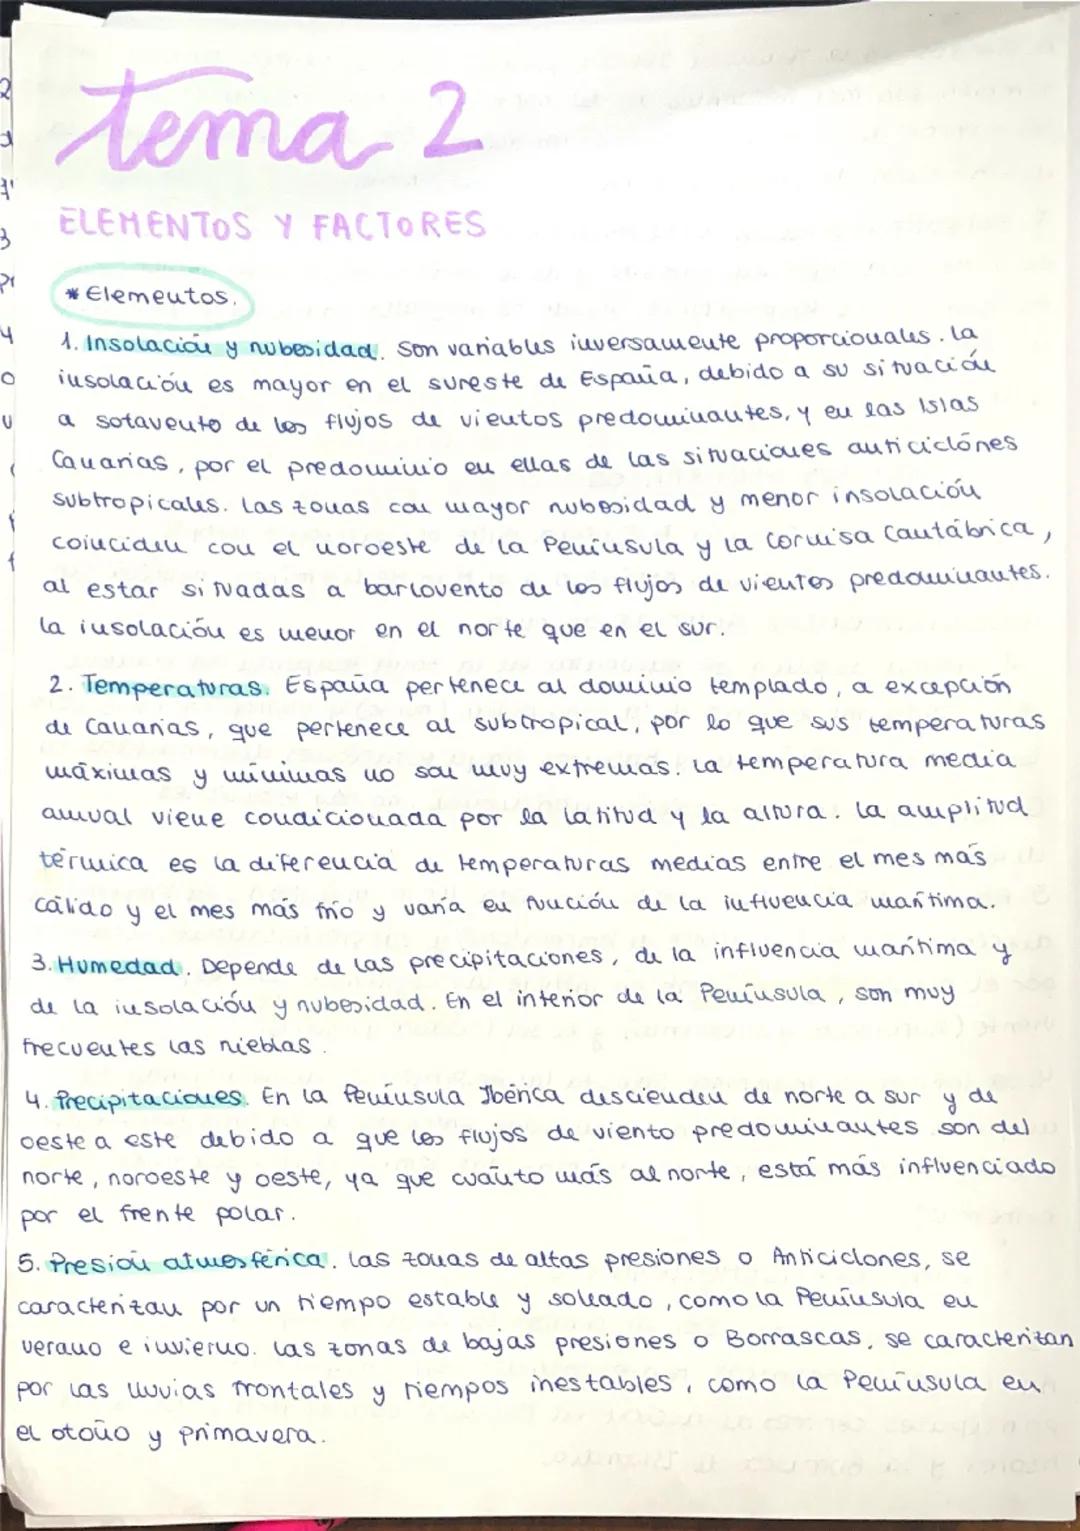 tema 2
ELEMENTOS Y FACTORES
* Elementos.
1. Insolación y nubosidad. Son variables inversamente proporcionales. La
insolación es mayor en el sureste de España, debido a su situación
a sotavento de los flujos de vientos predominantes, y en las Islas
Canarias, por el predominio en ellas de las situaciones anticiclónes
subtropicales. Las zonas con mayor nubosidad y menor insolación
coinciden con el noroeste de la Península y la Cornisa Cantábrica,
al estar situadas a barlovento de los flujos de vientos predominantes.
La insolación es menor en el norte que en el sur.
2. Temperaturas. España pertenece al dominio templado, a excepción
de Canarias, que pertenece al subtropical, por lo que sus temperaturas
máximas y mínimas no son muy extremas. La temperatura media
anual viene condicionada por la latitud y la altura. La amplitud
térmica es la diferencia de temperaturas medias entre el mes más
cálido y el mes más frío y varía en función de la influencia marítima.
3. Humedad. Depende de las precipitaciones, de la influencia marítima y
de la insolación y nubosidad. En el interior de la Península, son muy
frecuentes las nieblas.
4. Precipitaciones. En la Península Ibérica descienden de norte a sur y de
oeste a este debido a que los flujos de viento predominantes son del
norte, noroeste y oeste, ya que cuánto más al norte, está más influenciado
por el frente polar.
5. Presión atmosférica. Las zonas de altas presiones o Anticiclones, se
caracterizan por un tiempo estable y soleado, como la Península en
verano e invierno. Las zonas de bajas presiones o Borrascas, se caracterizan
por las lluvias frontales y tiempos inestables, como la Península en
el otoño y primavera.